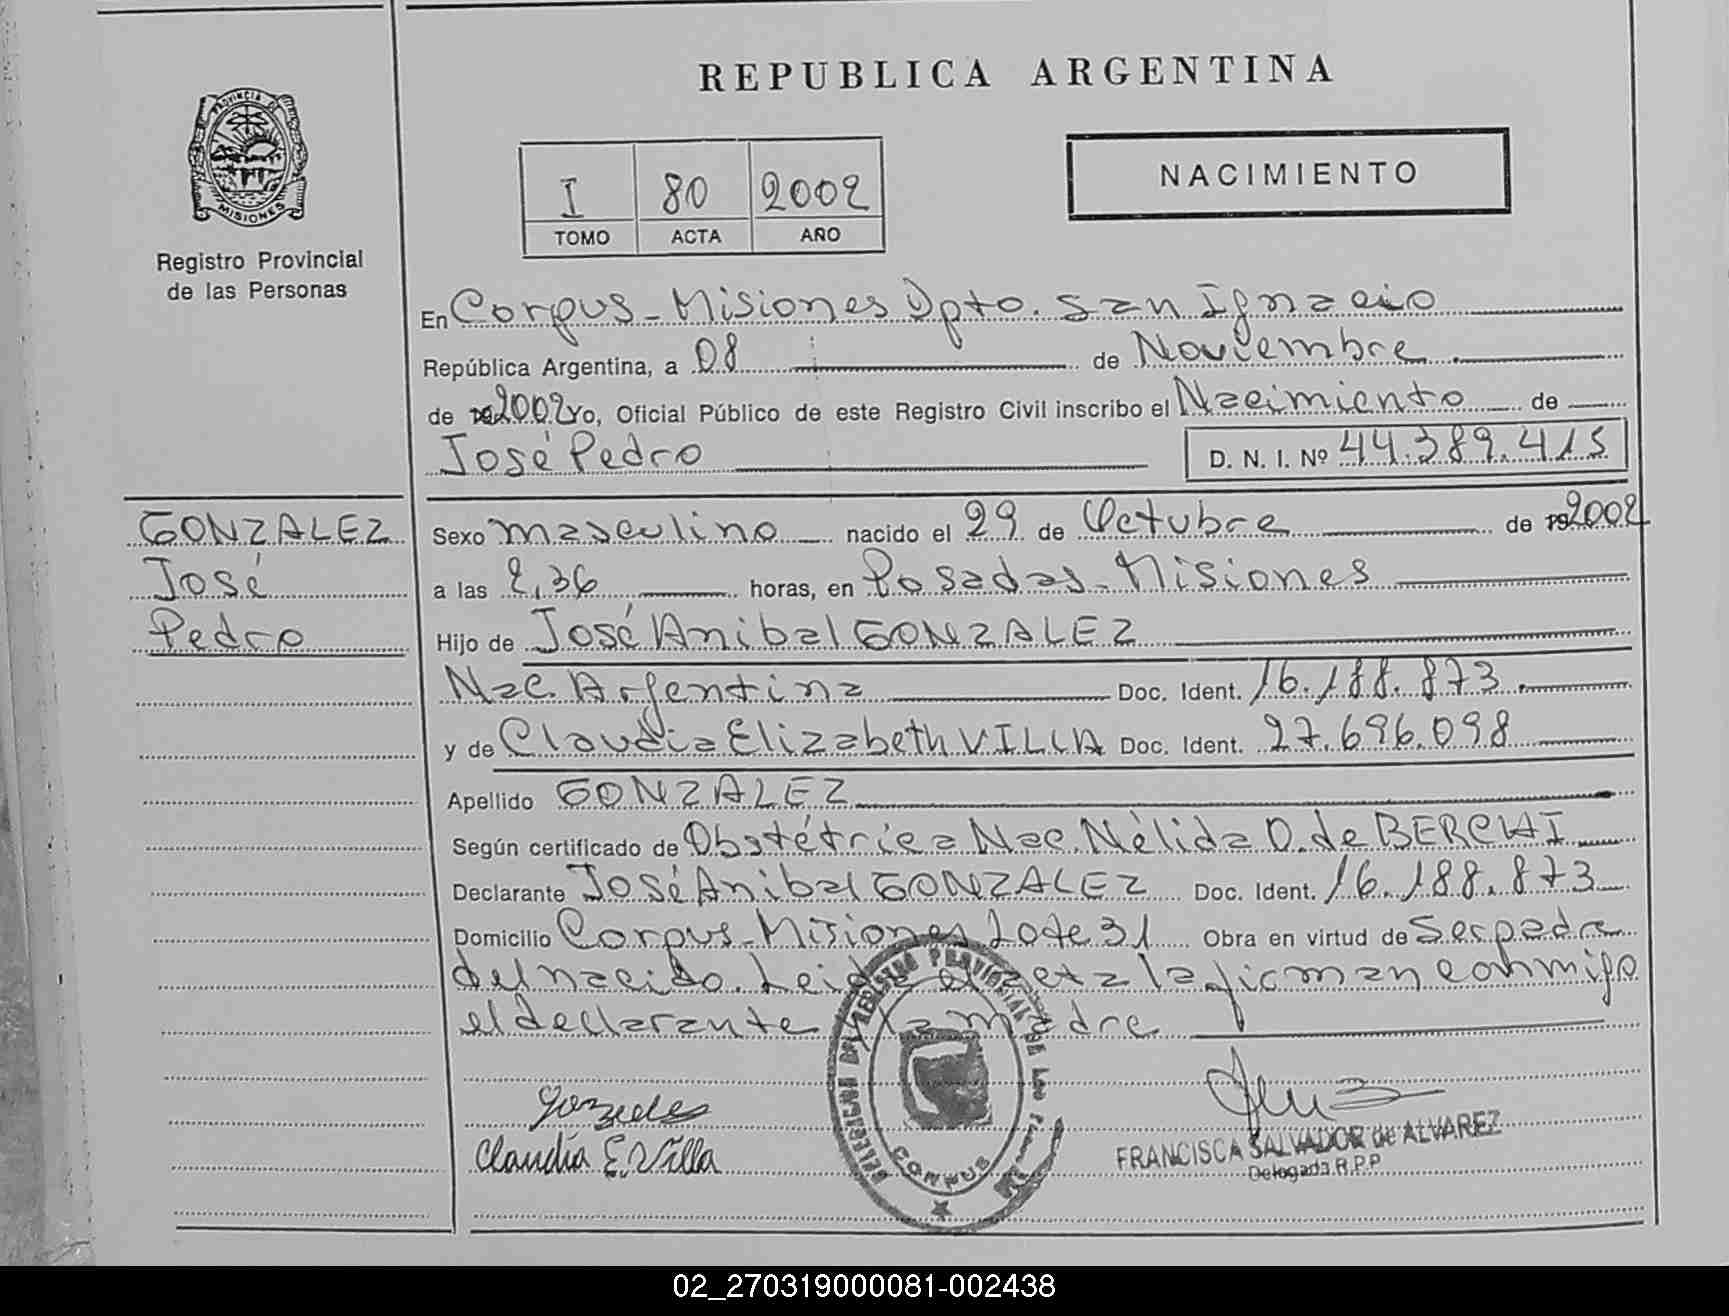 REPUBLICA ARGENTINA
PROVINCIA DE
MISIONES
Registro Provincial
de las Personas
I 80 2002
TOMO ACTA AÑO
NACIMIENTO
En Corpus - Misiones Dpto. San Ignacio
República Argentina, a 08 de Noviembre
de 2002 Yo, Oficial Público de este Registro Civil inscribo el Nacimiento de
José Pedro D. N. I. Nº 44.389.415
GONZALEZ
José
Pedro
Sexo masculino nacido el 29 de Octubre de 192002
a las 2,36 horas, en Posadas - Misiones
Hijo de José Anibal GONZALEZ
Nac. Argentina Doc. Ident. 16.188.873
y de Claudia Elizabeth VILLA Doc. Ident. 27.696.098
Apellido GONZALEZ
Según certificado de Obstétrica Nac. Nélida O. de
Declarante José Anibal GONZALEZ Doc. Ident. 16.188.873
Domicilio Corpus - Misiones Lote 31 Obra en virtud de Ser padre
del nacido. Leida el acta la firman conmigo
el declarante y la madre
Gonzales
Claudia E. Villa
DELEGACION DEL REGISTRO PROVINCIAL DE LAS
CORPUS
FRANCISCA SALVADOR de ALVAREZ
Delegada R.P.P
02_270319000081-002438